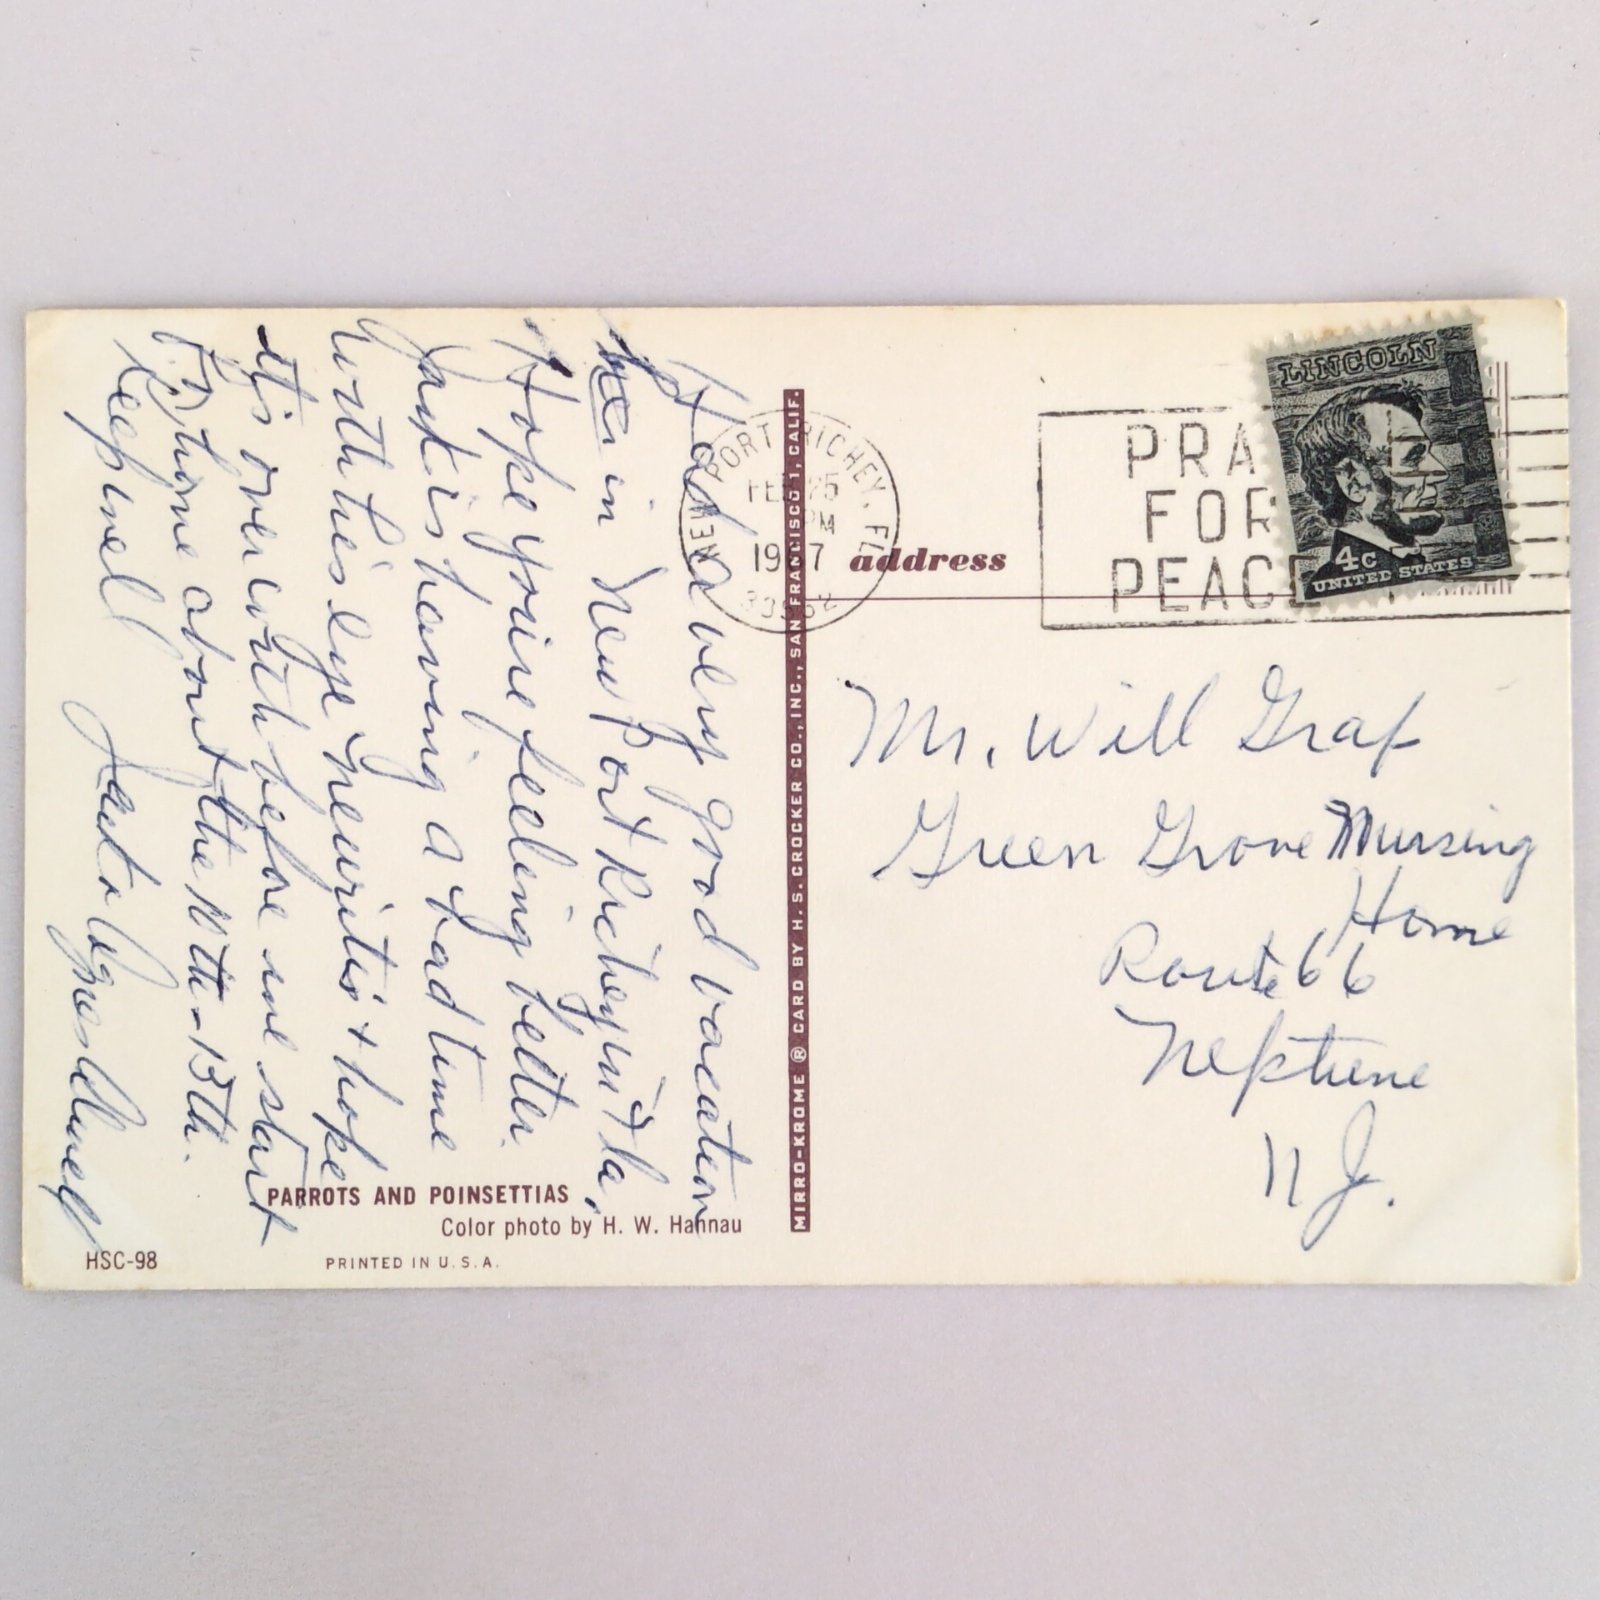 Had a very good vacation
in New Port Richey in Fla,
Hope you're feeling better.
Jack is having a bad time
with his eye neuritis & hope
it is over with before we start
home about the 10th - 13th.
Keep well
PARROTS AND POINSETTIAS
Color photo by H. W. Hannau
HSC-98
PRINTED IN U.S.A.
MIRRO-KROME ® CARD BY H. S. CROCKER CO., INC., SAN FRANCISCO 1, CALIF.
NEW PORT RICHEY, FL
FEB 25
PM
1967
address
PRA
FOR
PEACE
LINCOLN
4c
UNITED STATES
Mr. Will Graf
Green Grove Nursing
Home
Route 66
Neptune
N J.